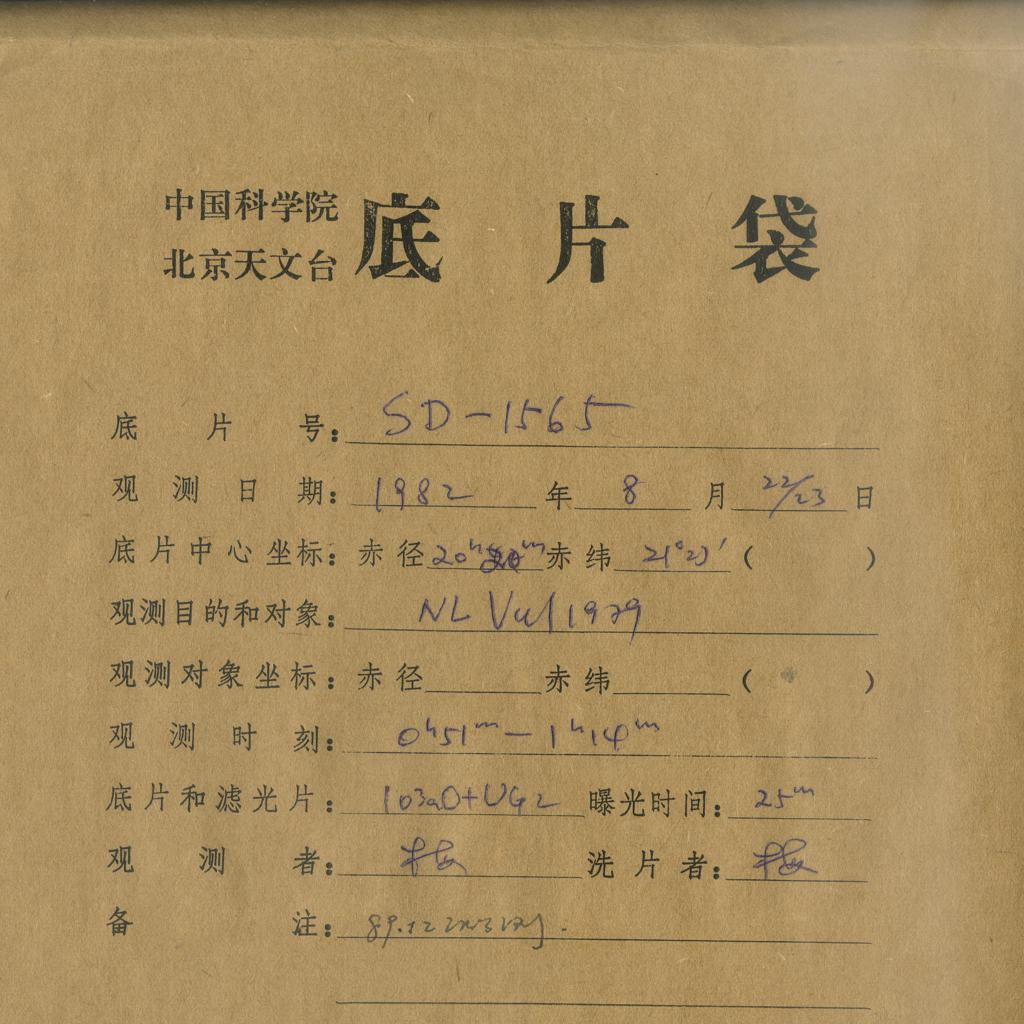 中国科学院
北京天文台
底片袋
底片号：SD-1565
观测日期：1982年8月22/23日
底片中心坐标：赤径20ʰ m赤纬21°23′（ ）
观测目的和对象：NL Vul 1979
观测对象坐标：赤径 赤纬 （ ）
观测时刻：0ʰ51ᵐ-1ʰ14ᵐ
底片和滤光片：103aO+UG2 曝光时间：25ᵐ
观测者：梅 洗片者：梅
备注：89.12